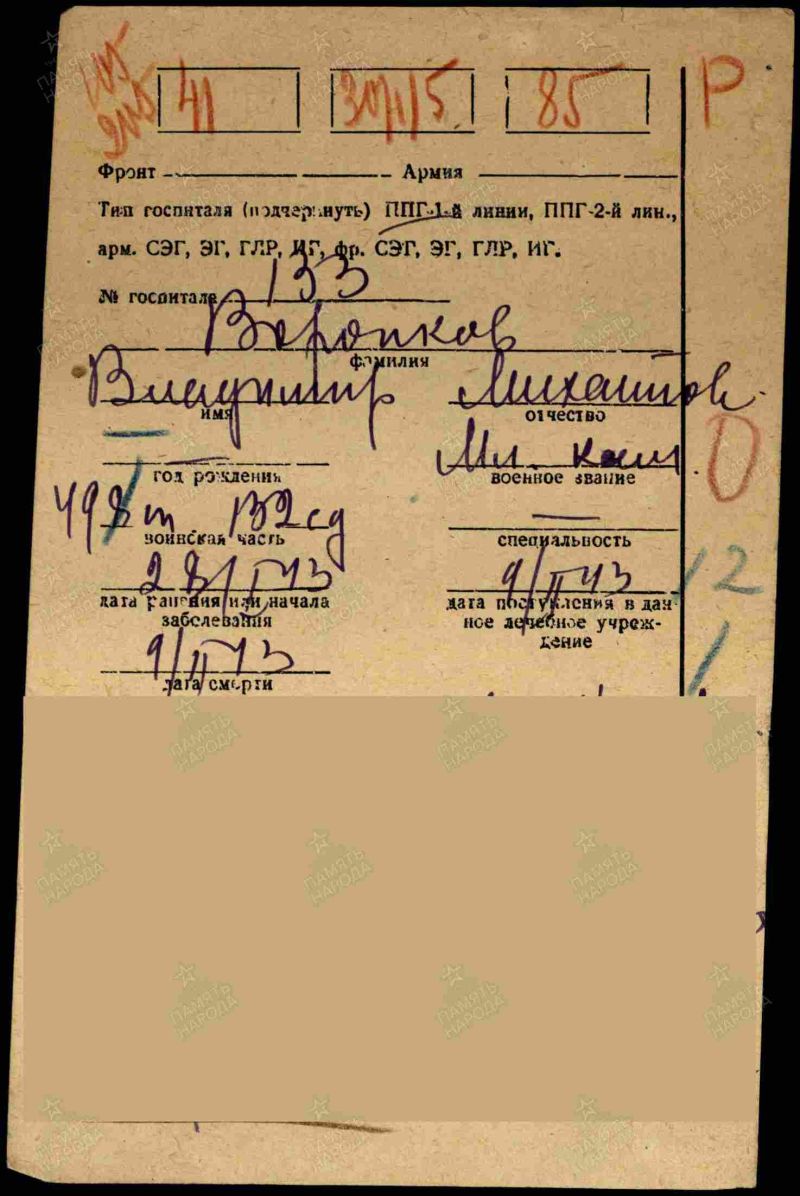 41 30/1/5 85 Р
Фронт Армия
Тип госпиталя (подчеркнуть) ППГ-1-й линии, ППГ-2-й лин.,
арм. СЭГ, ЭГ, ГЛР, ИГ, фр. СЭГ, ЭГ, ГЛР, ИГ.
№ госпиталя 133
Воропков
фамилия
Владимир Михайлов
имя отчество
Мл.
год рождения военное звание
132 сд
воинская часть специальность
28/I 43 9/II 43 12
дата ранения или начала дата поступления в дан-
заболевания ное лечебное учреж-
дение
9/II 43
дата смерти
ПАМЯТЬ НАРОДА